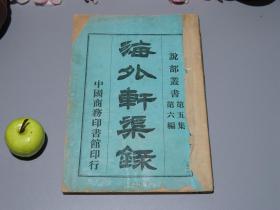 說部叢書
第五集
第六編
海外軒渠錄
中國商務印書館印行